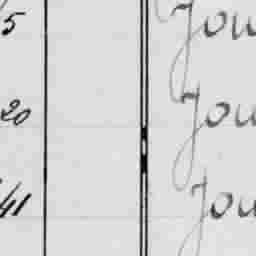 5 Jou
20 Jou
41 Jou